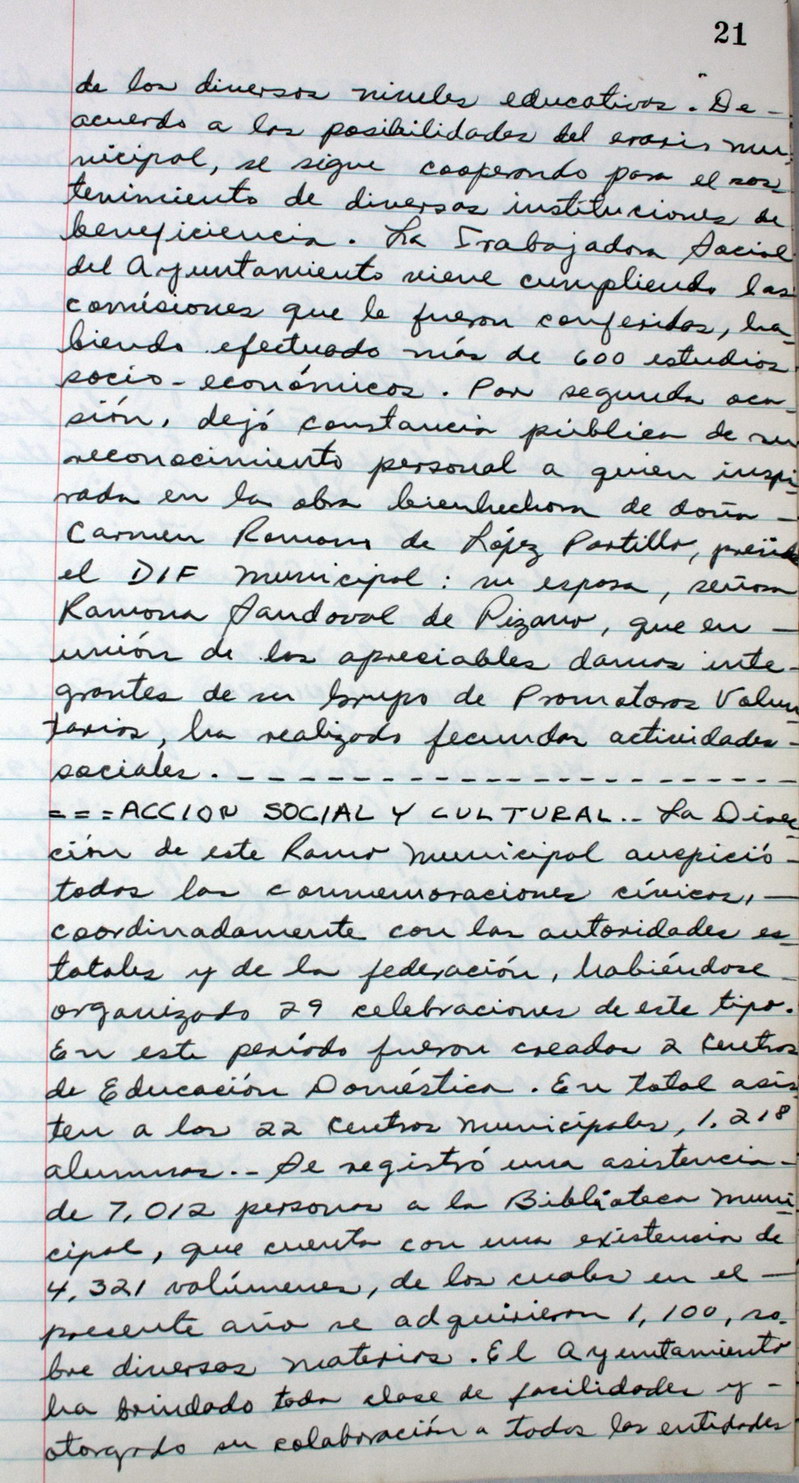 21
de los diversos niveles educativos. "De-
acuerdo a las posibilidades del erario mu-
nicipal, se sigue cooperando para el sos
tenimiento de diversas instituciones de
beneficiencia. La Trabajadora Social
del Ayuntamiento viene cumpliendo las
comisiones que le fueron conferidas, ha-
biendo efectuado más de 600 estudios
socio-económicos. Por segunda oca-
sión, dejó constancia pública de su
reconocimiento personal a quien inspi-
rada en la obra bienhechora de doña -
Carmen Romano de López Portillo, preside
el DIF Municipal: su esposa, señora
Ramona Sandoval de Pizano, que en -
unión de las apreciables damas inte-
grantes de su Grupo de Promotoras Volun
tarias, ha realizado fecundas actividades-
sociales. - - - - - - - - - - - - - - - - - -
===ACCION SOCIAL Y CULTURAL.- La Direc-
ción de este Ramo Municipal auspició -
todas las conmemoraciones cívicas, -
coordinadamente con las autoridades es-
tatales y de la federación, habiéndose -
organizado 29 celebraciones de este tipo.
En este período fueron creados 2 Centros
de Educación Doméstica. En total asis-
ten a los 22 Centros Municipales, 1.218
alumnas.- Se registró una asistencia-
de 7,012 personas a la Biblioteca Muni-
cipal, que cuenta con una existencia de
4,321 volúmenes, de los cuales en el -
presente año se adquirieron 1,100, so-
bre diversas materias. El Ayuntamiento
ha brindado toda clase de facilidades y -
otorgado su colaboración a todas las entidades